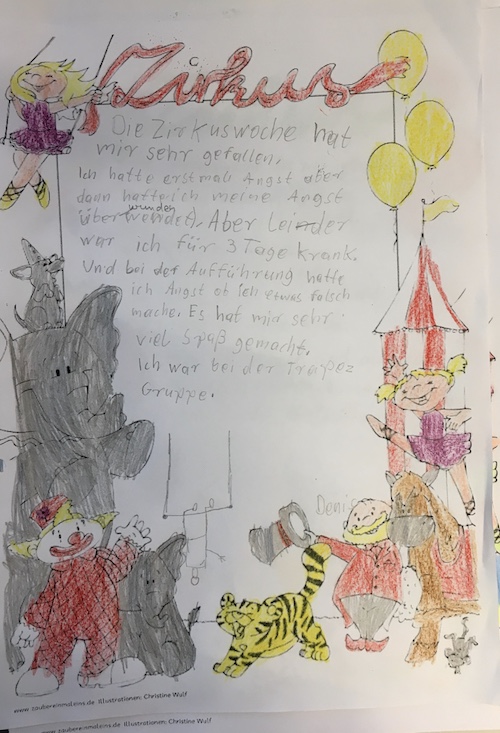 Zirkus
Die Zirkuswoche hat
mir sehr gefallen.
Ich hatte erstmal Angst aber
dann hatte ich meine Angst
überwendet). Aber Leider
wunden
war ich für 3 Tage krank.
Und bei der Aufführung hatte
ich Angst ob ich etwas falsch
mache. Es hat mir sehr
viel Spaß gemacht.
Ich war bei der Trapez
Gruppe.
www.zaubereinmaleins.de Illustrationen: Christine Wulf
www.zaubereinmaleins.de Illustrationen: Christine Wulf